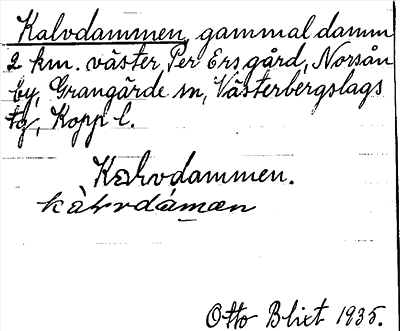 Kalvdammen, gammal damm
2 km. väster Per Ers gård, Norsån
by, Grangärde sn, Västerbergslags
tg, Kopp l.
Kalvdammen.
Otto Blixt 1935.